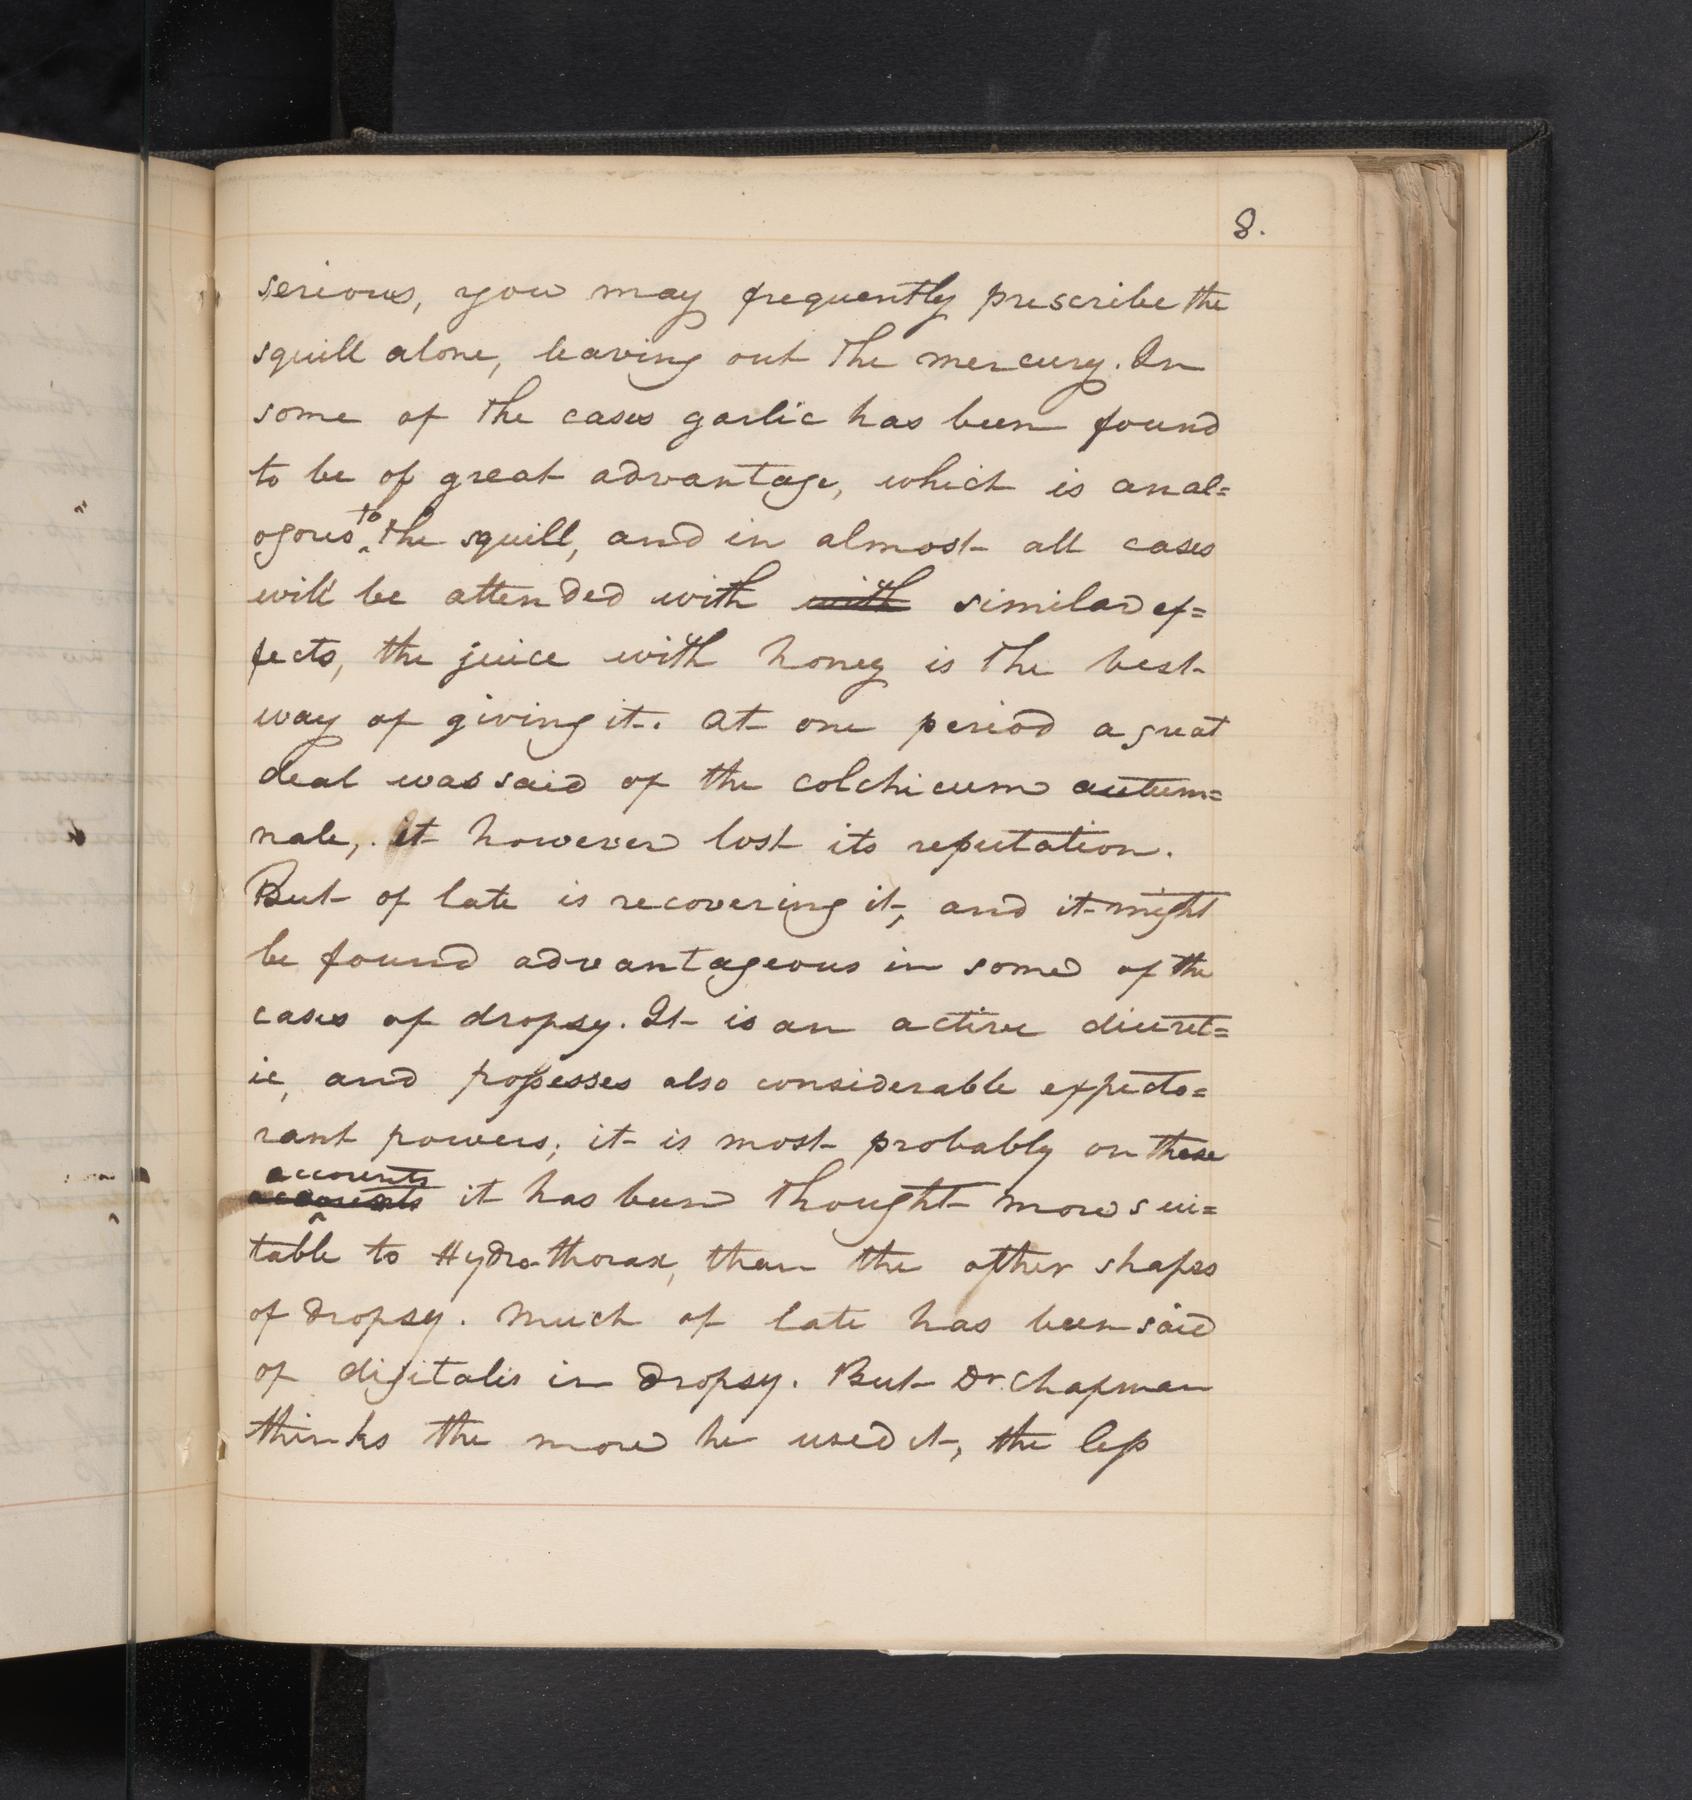 8.
serious, you may frequently prescribe the
squill alone, leaving out the mercury. In
some of the cases garlic has been found
to be of great advantage, which is anal=
ogous to the squill, and in almost all cases
will be attended with with similar ef=
fects, the juice with honey is the best
way of giving it. At one period a great
deal was said of the colchicum autum=
nale,. It however lost its reputation.
But of late is recovering it, and it might
be found advantageous in some of the
cases of dropsy. It is an active diuret=
ic, and possesses also considerable expecto=
rant powers; it is most probably on these
accounts
accounts it has been thought more sui=
table to Hydrothorax, than the other shapes
of dropsy. Much of late has been said
of digitalis in dropsy. But Dr. Chapman
thinks the more he used it, the less